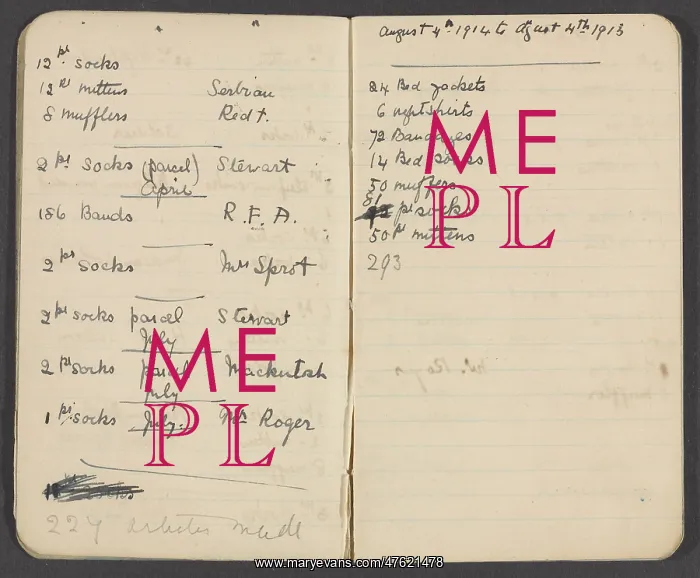 12 prs socks
12 prs mittens Serbian
8 mufflers Red +.
2 prs socks (parcel) Stewart
April
186 Bands R.F.A.
2 prs socks Mrs Sprot
2 prs socks parcel Stewart
July
2 prs socks parcel Mackintosh
July
1 prs socks July. Mr Roger
socks
224 articles made
August 4th 1914 to August 4th 1915
24 Bed jackets
6 nightshirts
72 Bandages
14 Bed socks
50 mufflers
81
pr socks
50 prs mittens
293
ME
PL
ME
PL
www.maryevans.com/47621478